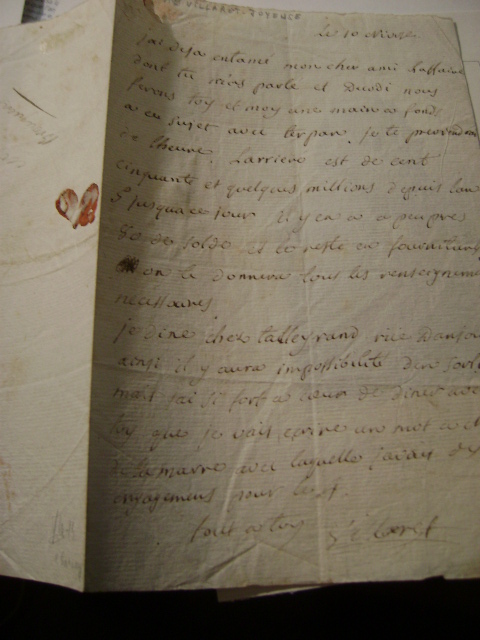 Le 10 Nivose
j'ai deja entamé mon cher ami l'affaire
dont tu m'as parlé et Duodi nous
ferons toy et moy une main a fond
a ce sujet avec
de lheure. Larriere est de cent
cinquante et quelques millions depuis lan
5 jusqua ce jour il y en a a peu pres
de solde et le reste en fournitures
on te donnera tous les renseigneme
necessaires
je dine chez talleyrand rue Danjou
ainsi il y aura impossibilité den sortir
mais j'ai si fort a coeur de diner avec
toy que je vais ecrire un mot a
de lamarre avec laquelle javais des
engagemens pour le
tout a toy